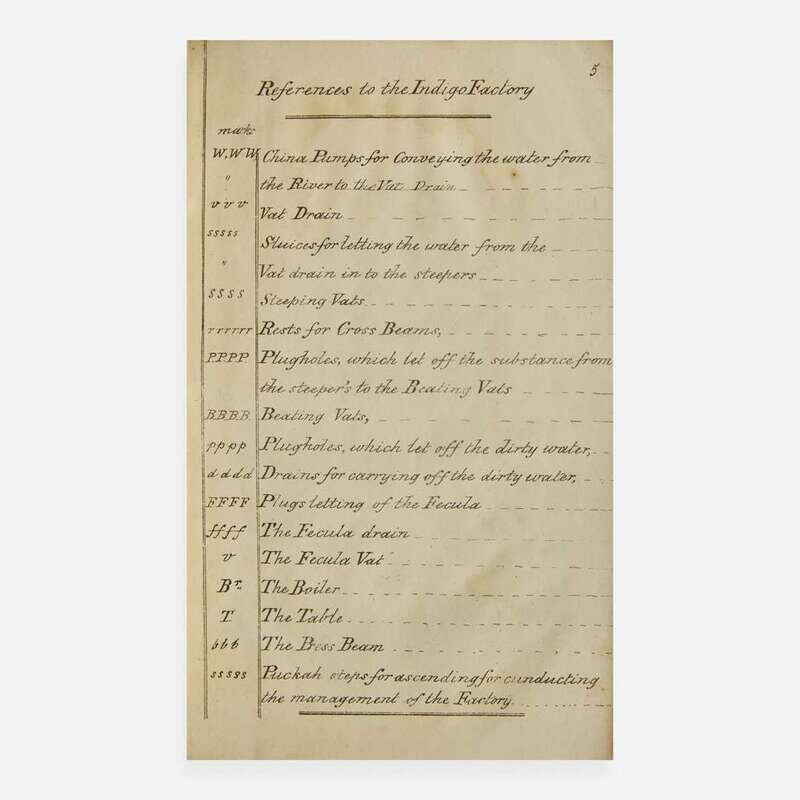 5
References to the Indigo Factory
marks
W,W W, China Pumps for Conveying the water from
" the River to the Vat Drain
v v v Vat Drain
sssss Sluices for letting the water from the
" Vat drain in to the steepers
SSSS Steeping Vats
rrrrrr Rests for Cross Beams,
P.P.P.P. Plugholes, which let off the substance from
the steeper's to the Beating Vats
B.B.B.B. Beating Vats,
pppp Plugholes, which let off the dirty water,
d d d d Drains for carrying off the dirty water,
FFFF Plugs letting of the Fecula
ffff The Fecula drain
v The Fecula Vat
Br. The Boiler
T. The Table
b b b The Press Beam
sssss Puckah steps for ascending for cunducting
the management of the Factory.